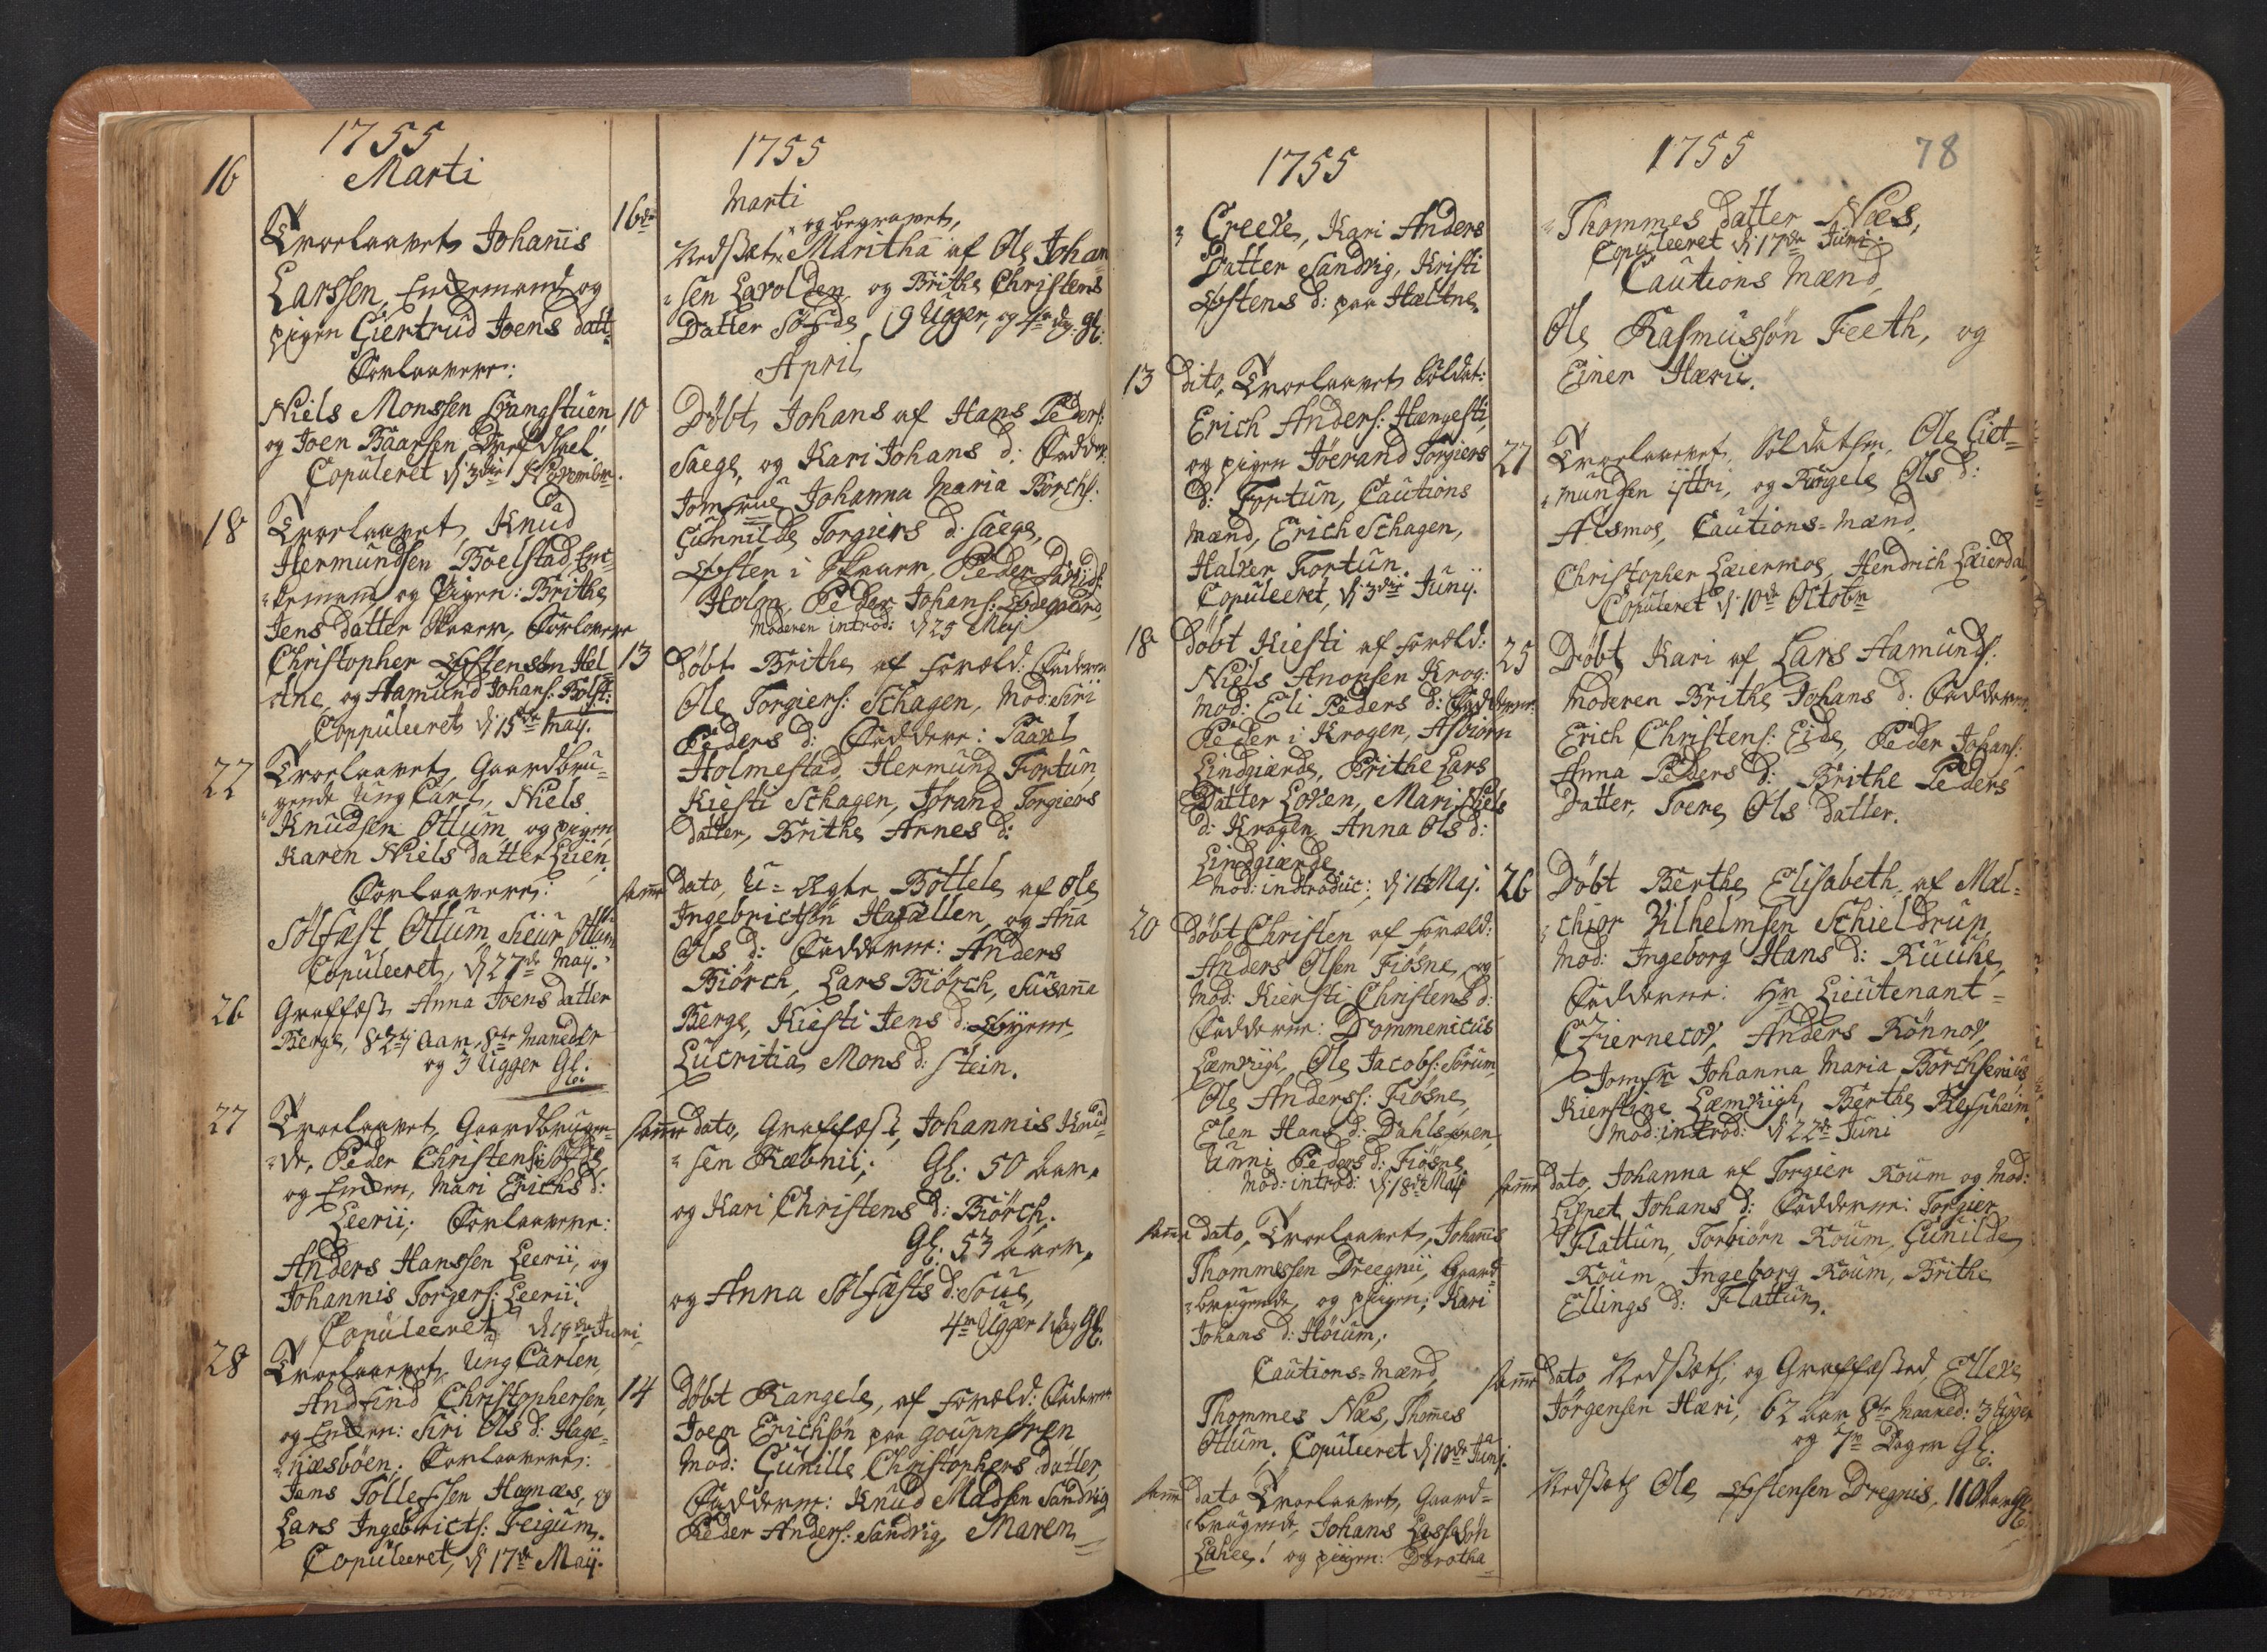 1755
Marti
16
Troelaavet Johanis
Larssen, Enckemand og
pigen Giertrud Joens datt:
Forlaavere:
Niels Monssen Krangstuen
og Joen Baarsen
Copuleret d: 3die November.
18 Troelaavet, Knud
Hermundsen Boelstad, Enc-
kemand og Pigen: Brithe
Jens datter Skaar, Forlovere
Christopher Østensøn Hel
tne, og Aamund Johans: Bolst:
Coppuleeret d: 15de May.
22 Troelaavet, Gaardbru-
gende Ung Carl, Niels
Knudsen Ottum og pigen
Karen Niels datter Lien.
Forlaavere:
Sølfæst Ottum Siur Ottum
Copuleeret, d: 27de May.
26 Graffæst Anna Joens datter
Berge, 82 Aar, 8te Maneder
og 3 Ugger Gl:
27 Troelaavet, Gaardbrugen-
de, Peder Christens:
og Enken, Mari Erichs d:
Leerii; Forlaavere:
Anders Hanssen Leerii, og
Johannis Torgers: Leerii.
Copuleeret d: 19de Juni
28 Troelaavet, Ung Carlen,
Andfind Christophersen,
og Enken: Siri Ols d: Hage-
næsbøen; Forlaavere:
Jens Tollefsen Hagnæs, og
Lars Ingebricts: Feigum.
Copuleeret, d: 17de Maij.
1755
Marti
16de og begravet,
Nedsat Maritha af Ole Johan
sen Lavolden og Brithe Christens
Datter 9 Ugger, og 4re dag: gl:
April
10 Døbt, Johans af Hans Peders:
Saege, og Kari Johans d: Fadder:
Jomfrue Johanna Maria Borchs:
Gunnilde Torgiers d: Saege,
Østen i Skaar, Peder Davids:
Holm, Peder Johans: Ødegaard,
Moderen introd: d 25 Maj
13 Døbt Brithe af Foræld: Faderen
Ole Torgiers: Schagen, Mod: Siri
Peders d: Faddere: Paavl
Holmestad, Hermund Fortun,
Kiesti Schagen, Jørand Torgiers
datter, Brithe Arnes d:
samme dato, U-Ægte Bottele af Ole
Ingebrictsøn Hafællen, og Aña
Ols d: Fadderne: Anders
Biørch, Lars Biørch, Susaña
Berge, Kiesti Jens d:
Lucritia Mons d: Stein.
samme dato, Graffæst, Johannis Knud
sen Ræbnii; Gl: 50 Aar.
og Kari Christens d: Biørch;
Gl: 53 Aar.
og Anna Sølfæsts d:
4re Ugger 1 dag Gl:
14 Døbt Rangele, af Foræld: Faderen
Joen Erichsøn paa Goupnøren
Mod: Gunille Christophers datter,
Fadderne: Knud Madsen Sandvig
Peder Anders: Sandvig, Maren
1755
Creeve, Kari Anders
Datter Sandvig, Kristi
Østens d: paa Hæltne.
13 dito, Troelaavet Soldat:
Erich Anders: Hængesti,
og pigen Jøerand Torgiers
d: Fortun, Cautions
mænd, Erich Schagen,
Halver Fortun.
Copuleeret, d: 3die Junij.
18 Døbt Kiesti af Foræld:
Niels Anonsen Krog:
Mod: Eli Peders d: Fadderne:
Peder i Krogen, Asbiørn
Lindgiærde, Brithe Lars
Datter Loven, Mari Niels
d: Krogen, Anna Ols d:
Lindgiærde,
Mod: introduc: d: 16 Maj.
20 Døbt Christen af Foræld:
Anders Olsen Fiøsne, og
Mod: Kiersti Christens d:
Fadderne: Dommenicus
Læmvigh, Ole Jacobs: Sørum
Ole Anderss: Fiøsne,
Elen Hans d: Dahlsøren,
Unni Peders d: Fiøsne
Mod: introd: d: 18de Maij
samme dato, Troelaavet, Johañis
Thommessen Dreegnii, Gaard-
brugende, og pigen; Kari
Johans d: Høium;
Cautions-Mænd,
Thommes Næs, Thomes
Ottum. Copuleeret d: 10de Junj.
samme dato Troelaavet, Gaard-
brugende, Johans Lassesøn
Lahee! og pigen: Dorotha
1755 78
Thommes datter Næs,
Copuleeret d: 17de Juni.
Cautions Mænd,
Ole Rasmussøn Feeth, og
Einer Hærii.
27 Troelaavet Soldaten, Ole Giet-
mundsen ijttri, og Rangele Ols d:
Aesmoe, Cautions-mænd,
Christopher Læiermoe, Hendrich Læierdal
Copuleret d: 10de Octobr
25 Døbt, Kari af Lars Aamunds:
Moderen Brithe Johans d: Fadderne:
Erich Christens: Eide, Peder Johans:
Anna Peders d: Brithe Peders
Datter, Toere Ols datter.
26 Døbt Berthe Elisabeth af Mel-
chior Vilhelmsen Schieldrup,
Mod: Ingeborg Hans d:
Fadderne: Hr Lieutenant
Cziernecov, Anders Rønnov,
Jomfr Johanna Maria Borchsenius
Kierstine Læmvigh, Berthe
Mod: introd: d: 22de Juni
samme dato, Johanna af Torgier Roum og Mod:
Lispet Johans d: Fadderne: Torgier
Flattun, Torbiørn Roum, Gunilde
Roum, Ingeborg Roum, Brithe
Ellings d: Flattun.
samme dato Nedsat; og Graffæsted, Elleve
Jørgensen Hæri, 62 Aar 8te Maaned: 3 Ugger
og 7 Dager Gl:
Nedsat Ole Østensen Dregnis, 110 Aar Gl: